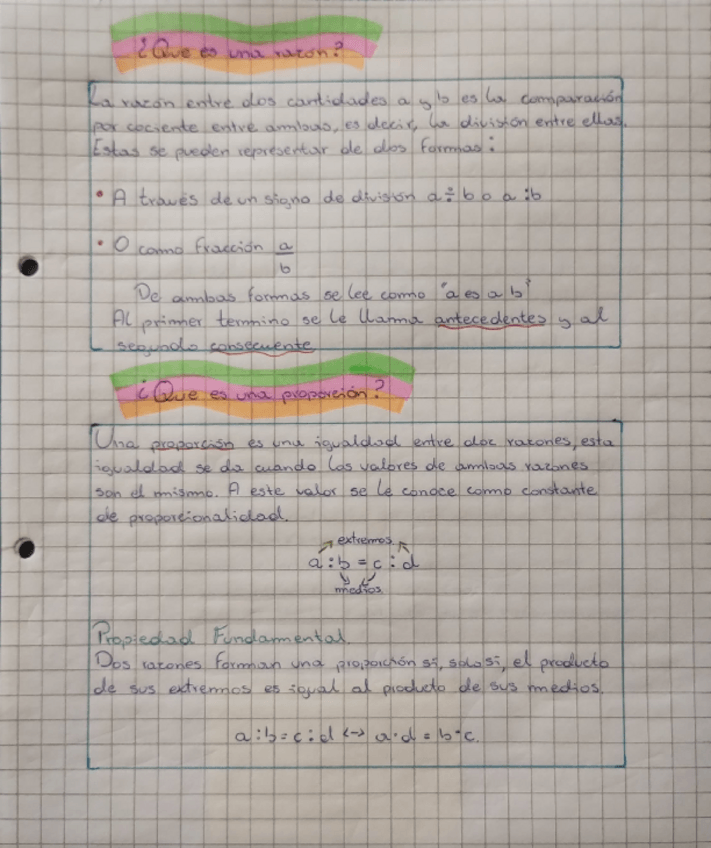 ¿Que es una razón?
La razón entre dos cantidades a y b es la comparación
por cociente entre ambas, es decir, la división entre ellas.
Estas se pueden representar de dos formas:
• A través de un signo de división a ÷ b o a :b
• O como fracción a
b
De ambas formas se lee como "a es a b"
Al primer termino se le llama antecedentes y al
segundo consecuente
¿Que es una proporción?
Una proporción es una igualdad entre dos razones, esta
igualdad se da cuando los valores de ambas razones
son el mismo. A este valor se le conoce como constante
de proporcionalidad.
extremos
a : b = c : d
medios
Propiedad Fundamental.
Dos razones forman una proporción si, solo si, el producto
de sus extremos es igual al producto de sus medios.
a : b = c : d ↔ a · d = b · c.